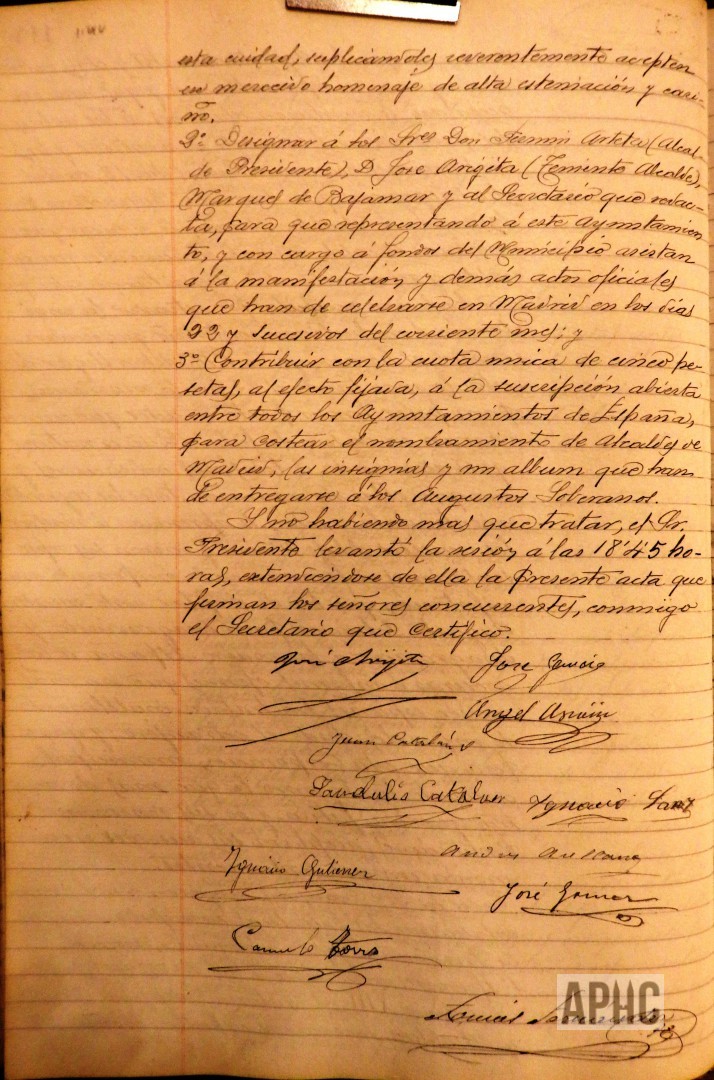 esta cuidad, suplicandoles reverentemente acepten
su merecido homenaje de alta estimación y cari-
ño.
2º Designar á los Sres Don Fermin Arteta (Alcal-
de Presidente), D. Jose Arigita (Teniente Alcalde),
Marques de Bajamar y al Secretario que redac-
ta, para que representando á este Ayuntamien
to, y con cargo á fondos del Municipio asistan
á la manifestación y demás actos oficiales
que han de celebrarse en Madrid en los días
22 y sucesivos del corriente mes; y
3º Contribuir con la cuota unica de cinco pe-
setas, al efecto fijada, á la suscripción abierta
entre todos los Ayuntamientos de España,
para costear el nombramiento de Alcaldes de
Madrid, las insignias y un album que han
de entregarse á los Augustos Soberanos.
Y no habiendo mas que tratar, el Sr.
Presidente levantó la sesión á las 18'45 ho-
ras, extendiendose de ella la presente acta que
firman los señores concurrentes, conmigo
el Secretario que certifico.
José Arigita Jose Garcia
Angel
Juan Catalán
Sandalio Catalan Ygnacio Sanz
Andres
Ygnacio Gutierrez
José Gomez
Camilo Torres
APHC